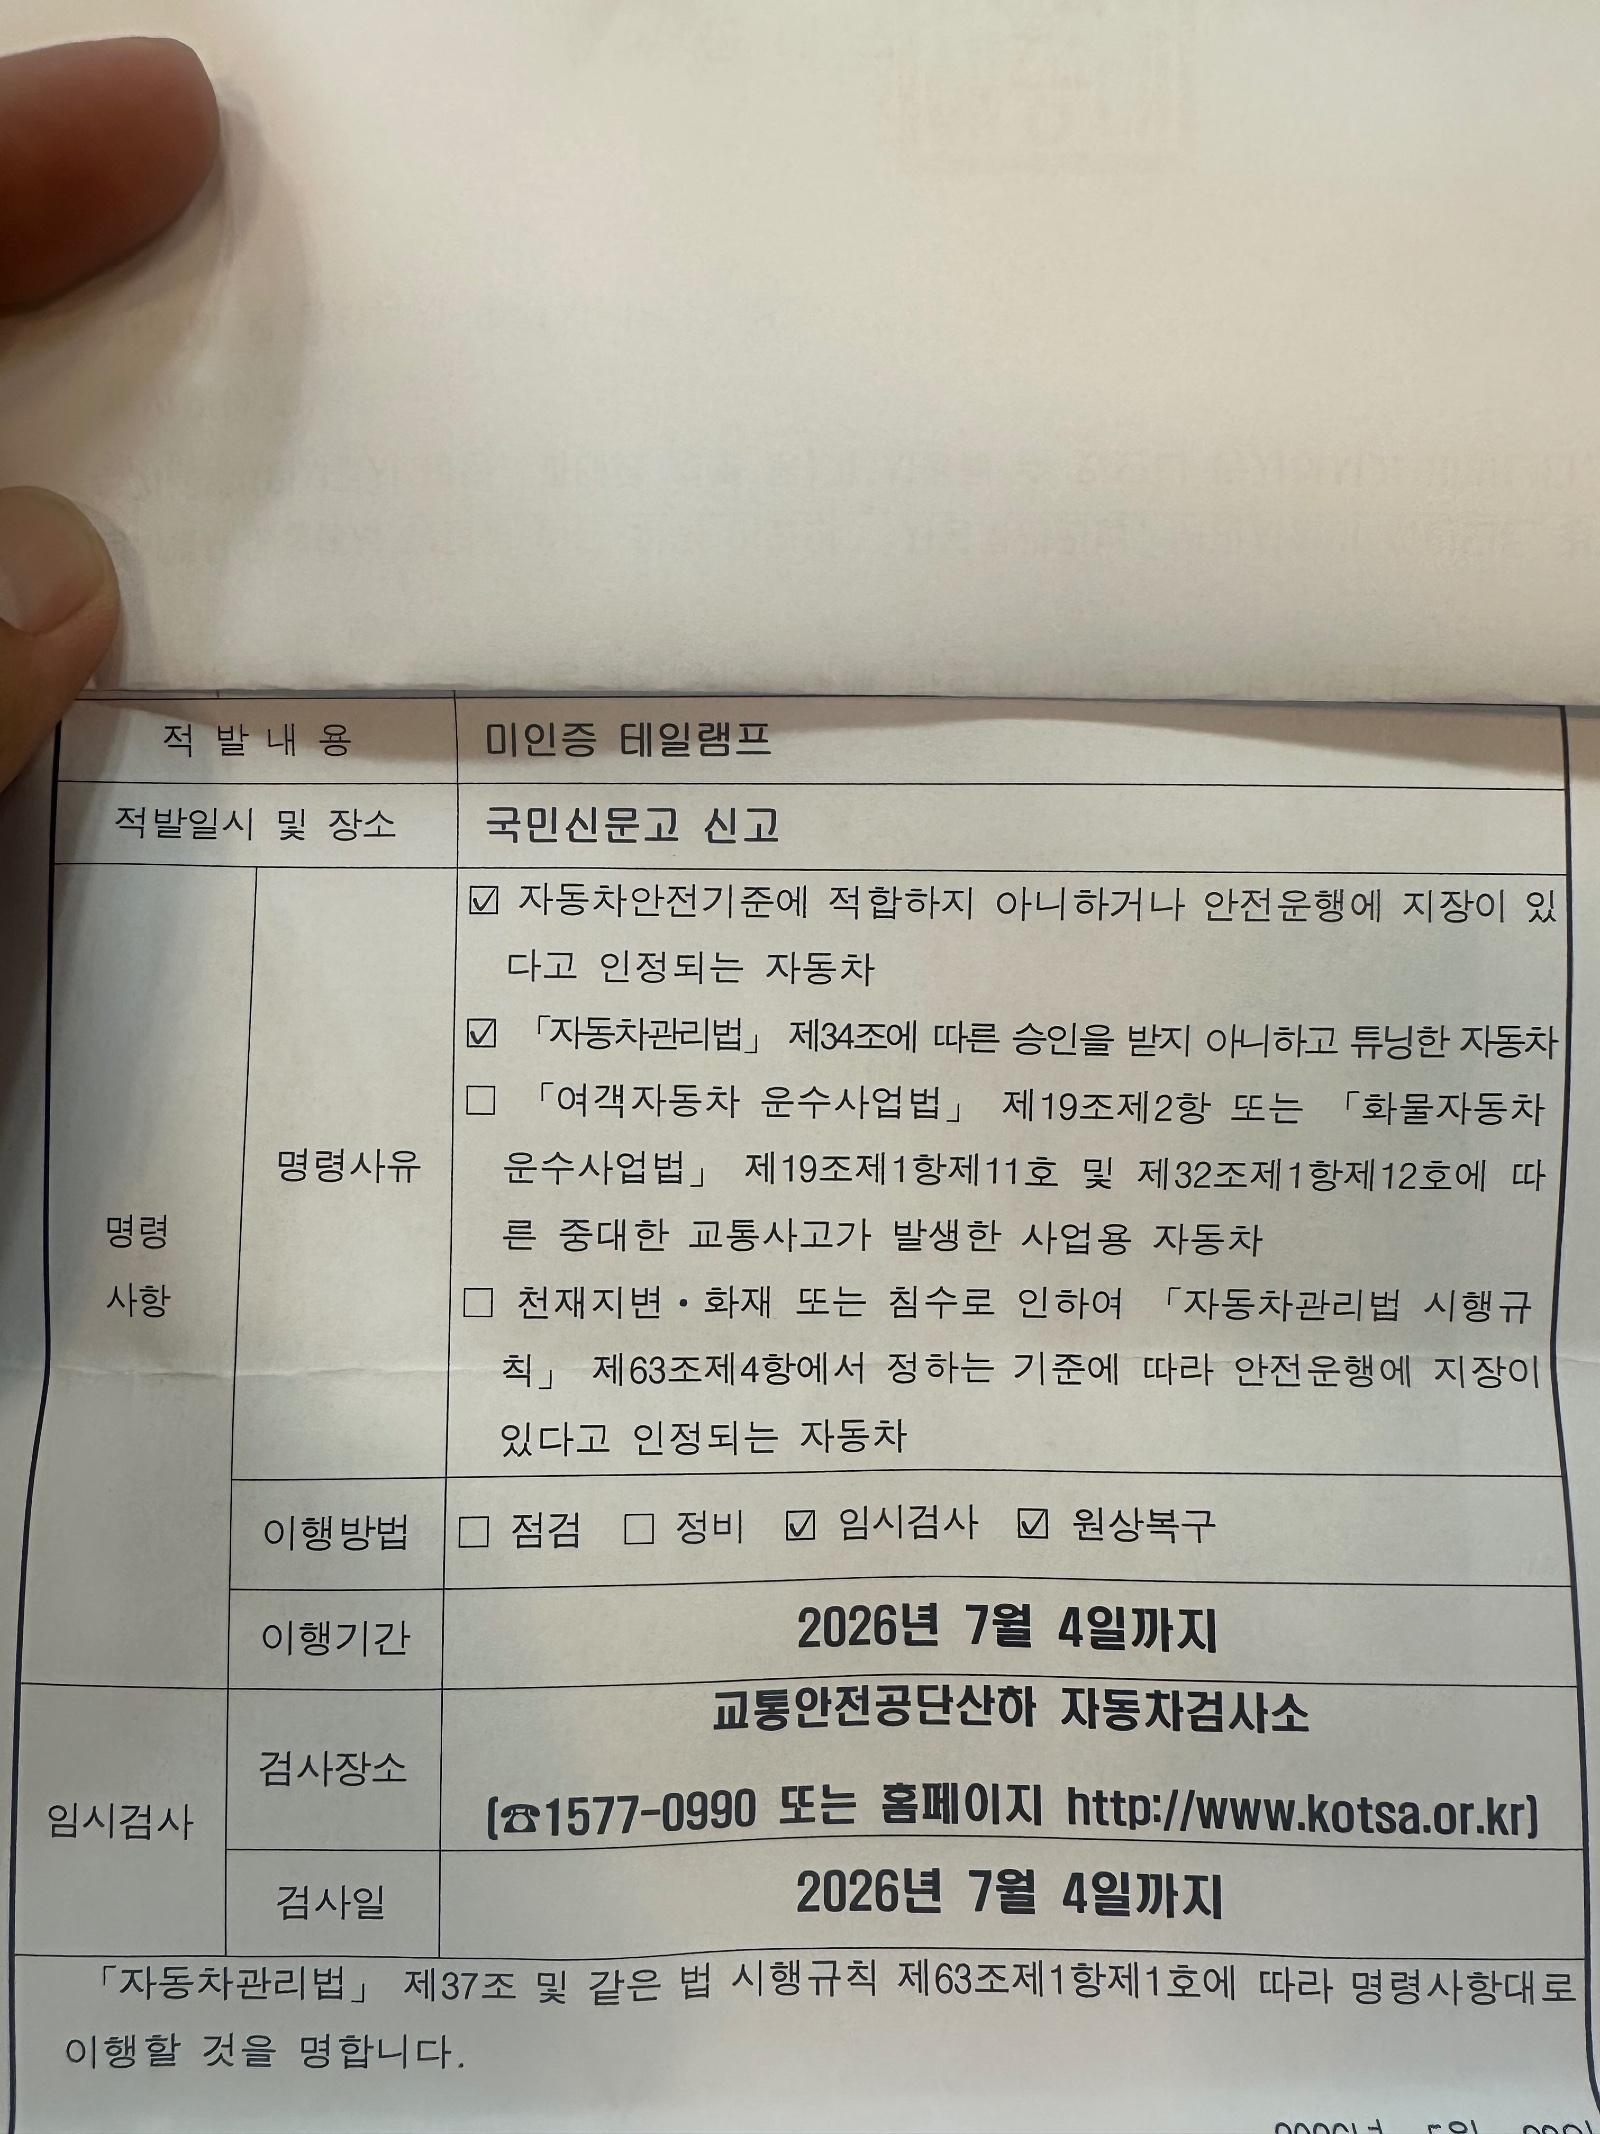 적 발 내 용 미인증 테일램프
적발일시 및 장소 국민신문고 신고
명령
사항
명령사유
☑ 자동차안전기준에 적합하지 아니하거나 안전운행에 지장이 있
다고 인정되는 자동차
☑ 「자동차관리법」 제34조에 따른 승인을 받지 아니하고 튜닝한 자동차
☐ 「여객자동차 운수사업법」 제19조제2항 또는 「화물자동차
운수사업법」 제19조제1항제11호 및 제32조제1항제12호에 따
른 중대한 교통사고가 발생한 사업용 자동차
☐ 천재지변·화재 또는 침수로 인하여 「자동차관리법 시행규
칙」 제63조제4항에서 정하는 기준에 따라 안전운행에 지장이
있다고 인정되는 자동차
이행방법 ☐ 점검 ☐ 정비 ☑ 임시검사 ☑ 원상복구
이행기간 2026년 7월 4일까지
임시검사
검사장소
교통안전공단산하 자동차검사소
(☎1577-0990 또는 홈페이지 http://www.kotsa.or.kr)
검사일 2026년 7월 4일까지
「자동차관리법」 제37조 및 같은 법 시행규칙 제63조제1항제1호에 따라 명령사항대로
이행할 것을 명합니다.